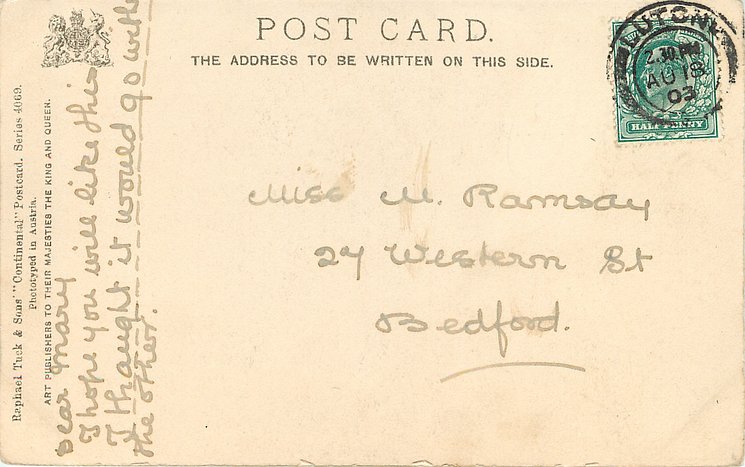 POST CARD.
THE ADDRESS TO BE WRITTEN ON THIS SIDE.
LUTON
2.30 PM
AU 18
03
HALFPENNY
Miss M. Ramsay
27 Western St
Bedford.
Raphael Tuck & Sons' "Continental" Postcard. Series 4069.
Phototyped in Austria.
ART PUBLISHERS TO THEIR MAJESTIES THE KING AND QUEEN.
Dear Mary
I hope you will like this
I thaught it would go with
the other.